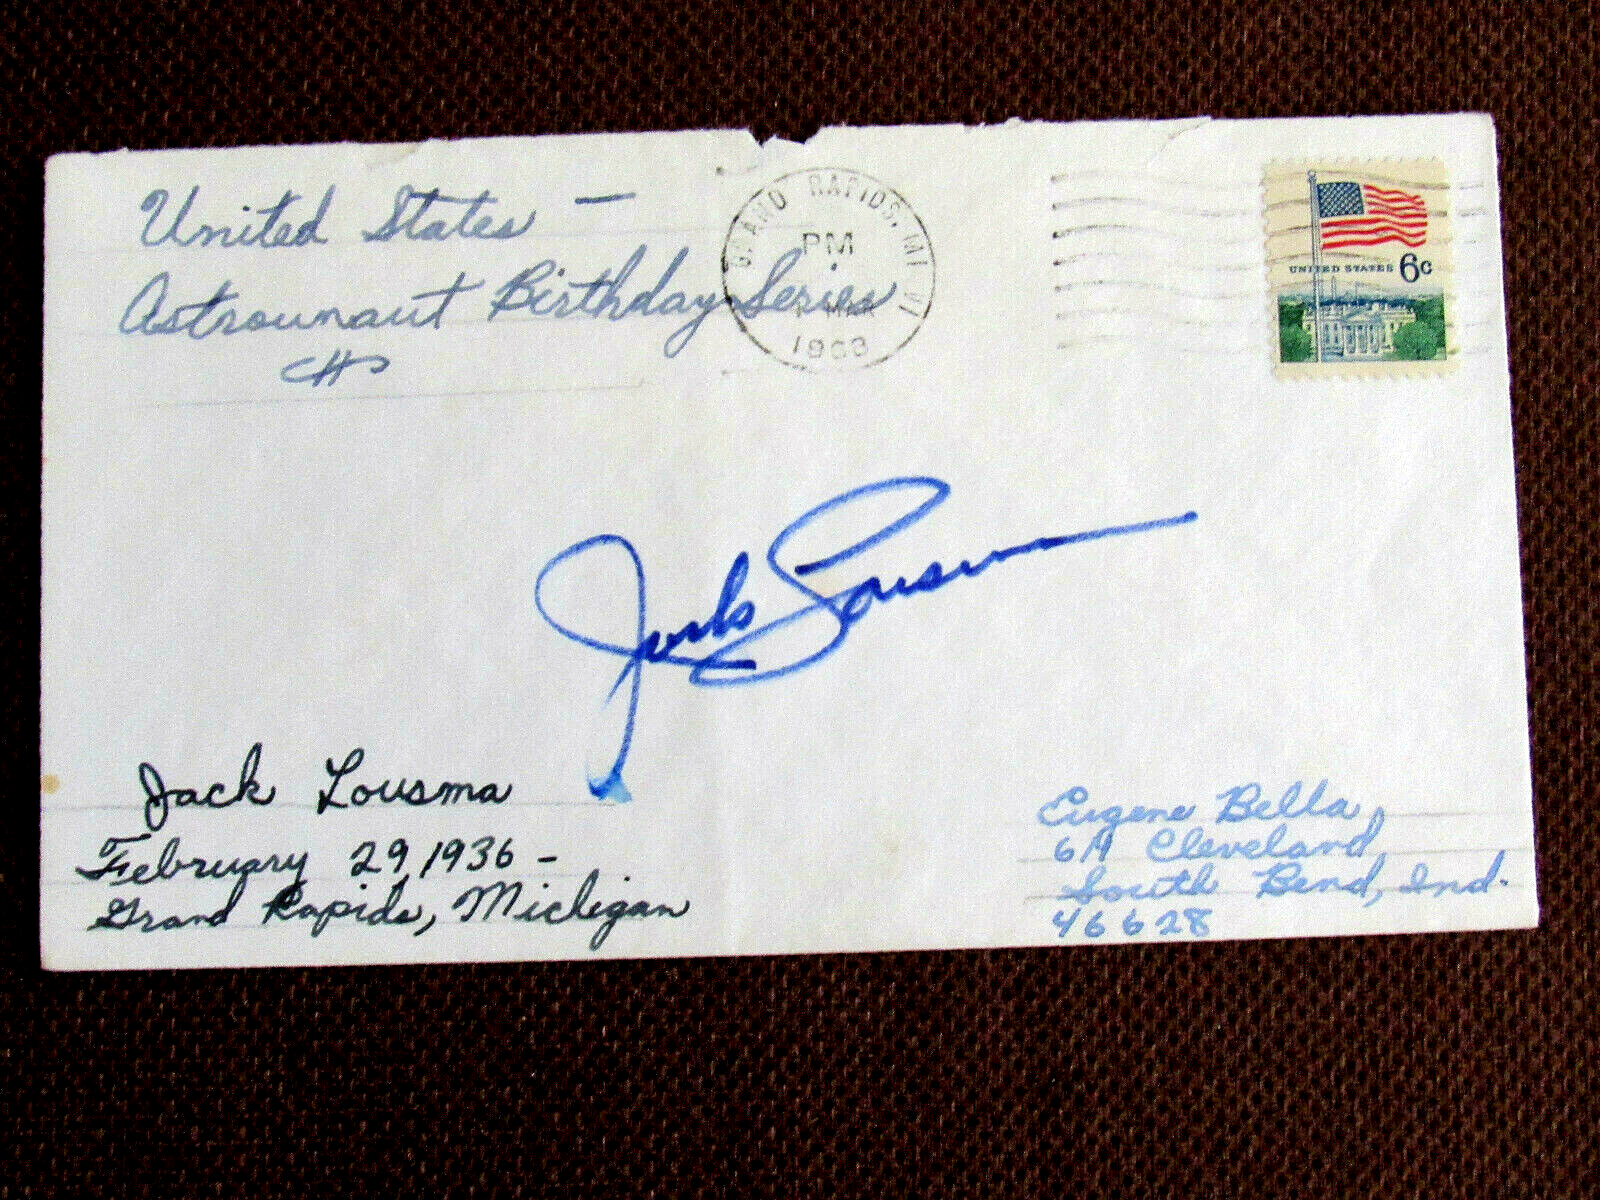 United States —
Astrounaut Birthday Series
GRAND RAPIDS, MI
PM
MAR
UNITED STATES 6c
Jack Lousma
Jack Lousma
February 29, 1936 –
Grand Rapids, Michigan
Eugene Bella
619 Cleveland,
South Bend, Ind.
46628